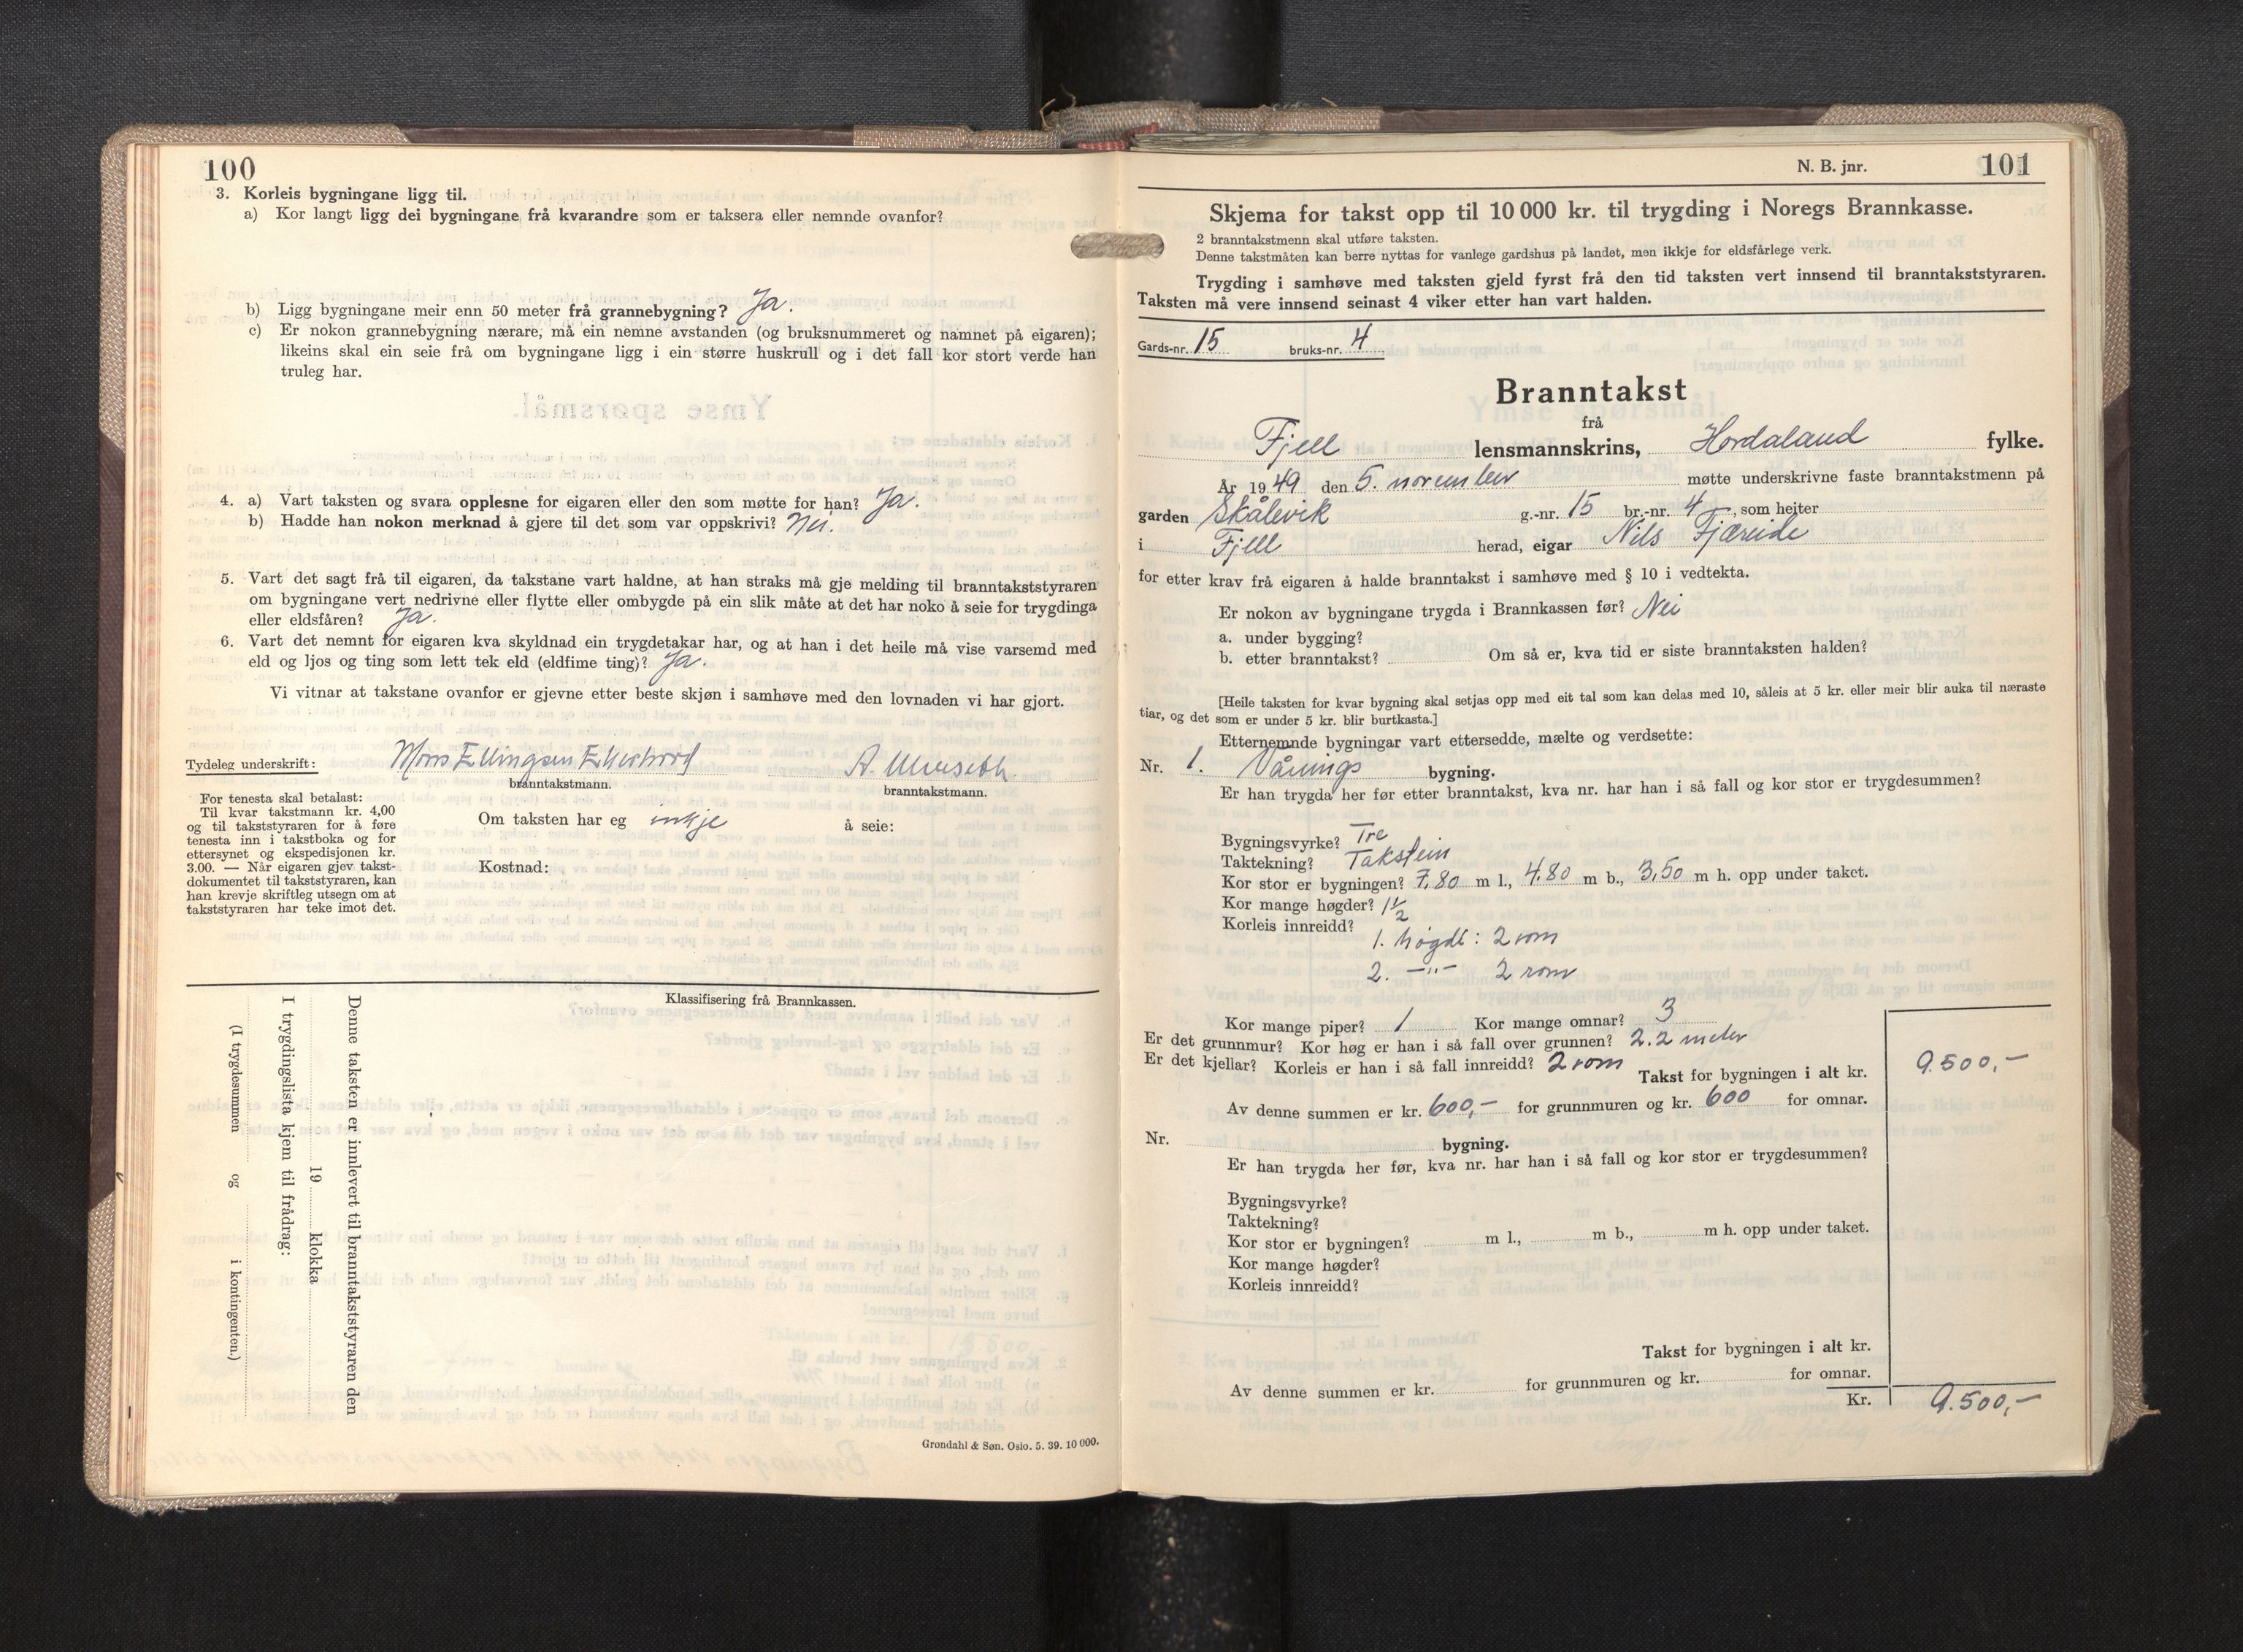 100
3. Korleis bygningane ligg til.
a) Kor langt ligg dei bygningane frå kvarandre som er taksera eller nemnde ovanfor?
b) Ligg bygningane meir enn 50 meter frå grannebygning? Ja.
c) Er nokon grannebygning nærare, må ein nemne avstanden (og bruksnummeret og namnet på eigaren);
likeins skal ein seie frå om bygningane ligg i ein større huskrull og i det fall kor stort verde han
truleg har.
4. a) Vart taksten og svara opplesne for eigaren eller den som møtte for han? Ja.
b) Hadde han nokon merknad å gjere til det som var oppskrivi? Nei.
5. Vart det sagt frå til eigaren, da takstane vart haldne, at han straks må gje melding til branntakststyraren
om bygningane vert nedrivne eller flytte eller ombygde på ein slik måte at det har noko å seie for trygdinga
eller eldsfåren? Ja.
6. Vart det nemnt for eigaren kva skyldnad ein trygdetakar har, og at han i det heile må vise varsemd med
eld og ljos og ting som lett tek eld (eldfime ting)? Ja.
Vi vitnar at takstane ovanfor er gjevne etter beste skjøn i samhøve med den lovnaden vi har gjort.
Tydeleg underskrift: Mons Ellingsen A.
branntakstmann. branntakstmann.
For tenesta skal betalast:
Til kvar takstmann kr. 4,00
og til takststyraren for å føre
tenesta inn i takstboka og for
ettersynet og ekspedisjonen kr.
3.00. — Når eigaren gjev takst-
dokumentet til takststyraren, kan
han krevje skriftleg utsegn om at
takststyraren har teke imot det.
Om taksten har eg inkje å seie:
Kostnad:
Klassifisering frå Brannkassen.
Denne taksten er innlevert til branntakststyraren den
19 klokka
I trygdingslista kjem til frådrag:
(I trygdesummen og i kontingenten.)
Grøndahl & Søn, Oslo. 5. 39. 10 000.
N. B. jnr. 101
Skjema for takst opp til 10 000 kr. til trygding i Noregs Brannkasse.
2 branntakstmenn skal utføre taksten.
Denne takstmåten kan berre nyttas for vanlege gardshus på landet, men ikkje for eldsfårlege verk.
Trygding i samhøve med taksten gjeld fyrst frå den tid taksten vert innsend til branntakststyraren.
Taksten må vere innsend seinast 4 viker etter han vart halden.
Gards-nr. 15 bruks-nr. 4
Branntakst
frå
Fjell lensmannskrins, Hordaland fylke.
År 1949 den 5. november møtte underskrivne faste branntakstmenn på
garden Skålevik g.-nr. 15 br.-nr. 4, som heiter
i Fjell herad, eigar Nils Fjæreide
for etter krav frå eigaren å halde branntakst i samhøve med § 10 i vedtekta.
Er nokon av bygningane trygda i Brannkassen før? Nei
a. under bygging?
b. etter branntakst? Om så er, kva tid er siste branntaksten halden?
[Heile taksten for kvar bygning skal setjas opp med eit tal som kan delas med 10, såleis at 5 kr. eller meir blir auka til næraste
tiar, og det som er under 5 kr. blir burtkasta.]
Etternemnde bygningar vart ettersedde, mælte og verdsette:
Nr. 1. Vånings bygning.
Er han trygda her før etter branntakst, kva nr. har han i så fall og kor stor er trygdesummen?
Bygningsvyrke? Tre
Taktekning? Takstein
Kor stor er bygningen? 7,80 m l., 4.80 m b., 3,50 m h. opp under taket.
Kor mange høgder? 1 1/2
Korleis innreidd?
1. høgde: 2 rom
2. —"— 2 rom
Kor mange piper? 1 Kor mange omnar? 3
Er det grunnmur? Kor høg er han i så fall over grunnen? 2.2 meter
Er det kjellar? Korleis er han i så fall innreidd? 2 rom
Takst for bygningen i alt kr. 9.500,—
Av denne summen er kr. 600,— for grunnmuren og kr. 600 for omnar.
Nr. bygning.
Er han trygda her før, kva nr. har han i så fall og kor stor er trygdesummen?
Bygningsvyrke?
Taktekning?
Kor stor er bygningen? m l., m b., m h. opp under taket.
Kor mange høgder?
Korleis innreidd?
Takst for bygningen i alt kr.
Av denne summen er kr. for grunnmuren og kr. for omnar.
Kr. 9.500,—